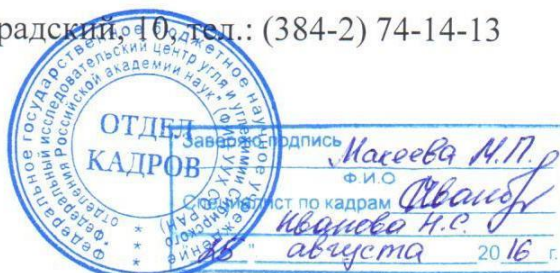 радский, 10, тел.: (384-2) 74-14-13
Федеральное государственное бюджетное научное учреждение
"Федеральный исследовательский центр угля и углехимии Сибирского
отделения Российской академии наук"
(ФИЦ УУХ СО РАН)
ОТДЕЛ
КАДРОВ
Заверяю подпись Макеева М.П.
Ф.И.О
Специалист по кадрам
Иванова Н.С.
"26" августа 2016 г.